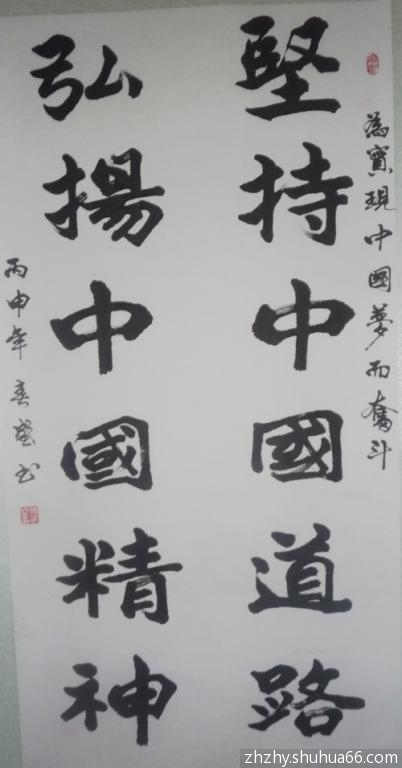 為實現中國夢而奮斗
堅持中國道路
弘揚中國精神
丙申年春
zhzhy.shuhua66.com